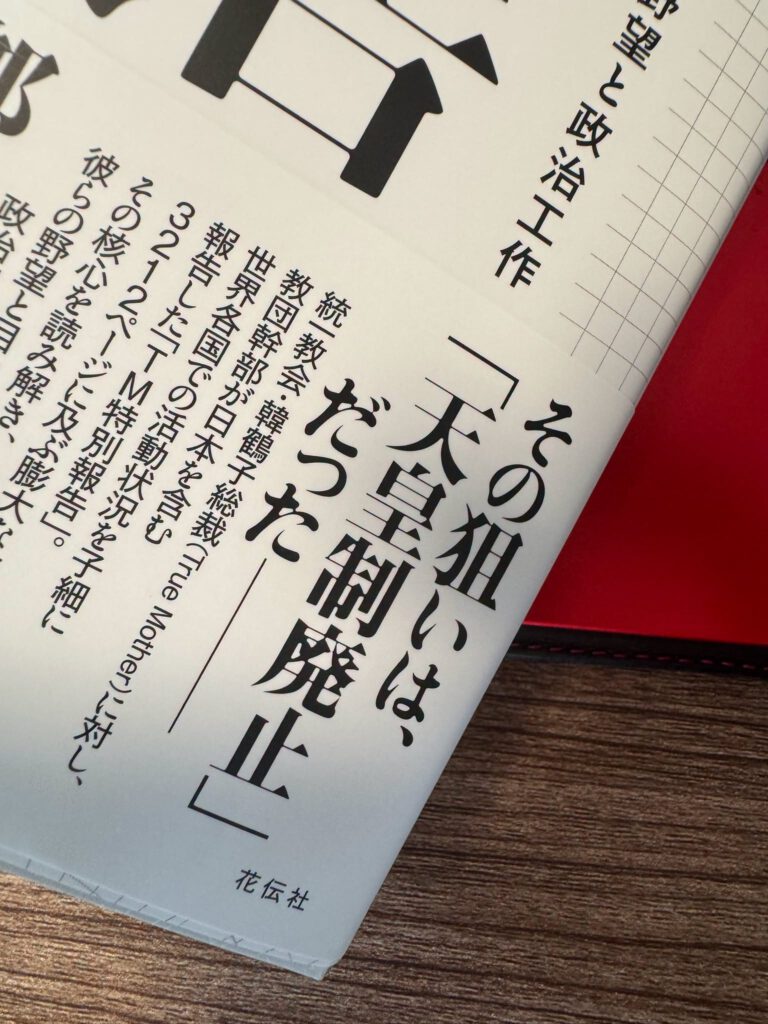 野望と政治工作
その狙いは、
「天皇制廃止」
だった――
統一教会・韓鶴子総裁(True Mother)に対し、
教団幹部が日本を含む
世界各国での活動状況を子細に
報告した「TM特別報告」。
3212ページに及ぶ膨大な
その核心を読み解き、
彼らの野望と目
政治
花伝社